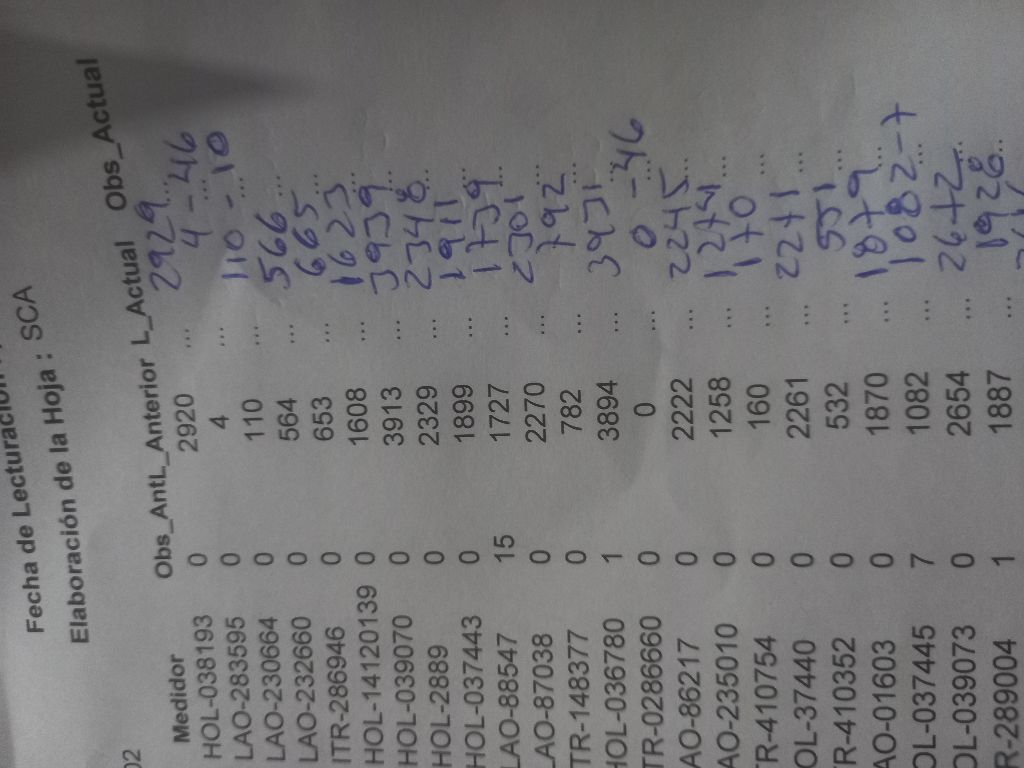 Fecha de Lecturación
Elaboración de la Hoja : SCA
02
Medidor Obs_AntL_Anterior L_Actual Obs_Actual
HOL-038193 0 2920 ... 2929 ...
LAO-283595 0 4 ... 4 - 46 ...
LAO-230664 0 110 ... 110 - 10 ...
LAO-232660 0 564 ... 566 ...
ITR-286946 0 653 ... 665 ...
HOL-14120139 0 1608 ... 1623 ...
HOL-039070 0 3913 ... 3939 ...
HOL-2889 0 2329 ... 2348 ...
HOL-037443 0 1899 ... 1911 ...
LAO-88547 15 1727 ... 1739 ...
LAO-87038 0 2270 ... 2301 ...
ITR-148377 0 782 ... 792 ...
HOL-036780 1 3894 ... 3931 ...
TR-0286660 0 0 ... 0 - 46 ...
AO-86217 0 2222 ... 2245 ...
AO-235010 0 1258 ... 1274 ...
TR-410754 0 160 ... 170 ...
OL-37440 0 2261 ... 2271 ...
R-410352 0 532 ... 551 ...
AO-01603 0 1870 ... 1879 ...
OL-037445 7 1082 ... 1082 - 7
OL-039073 0 2654 ... 2672 ...
R-289004 1 1887 ... 1926 ...